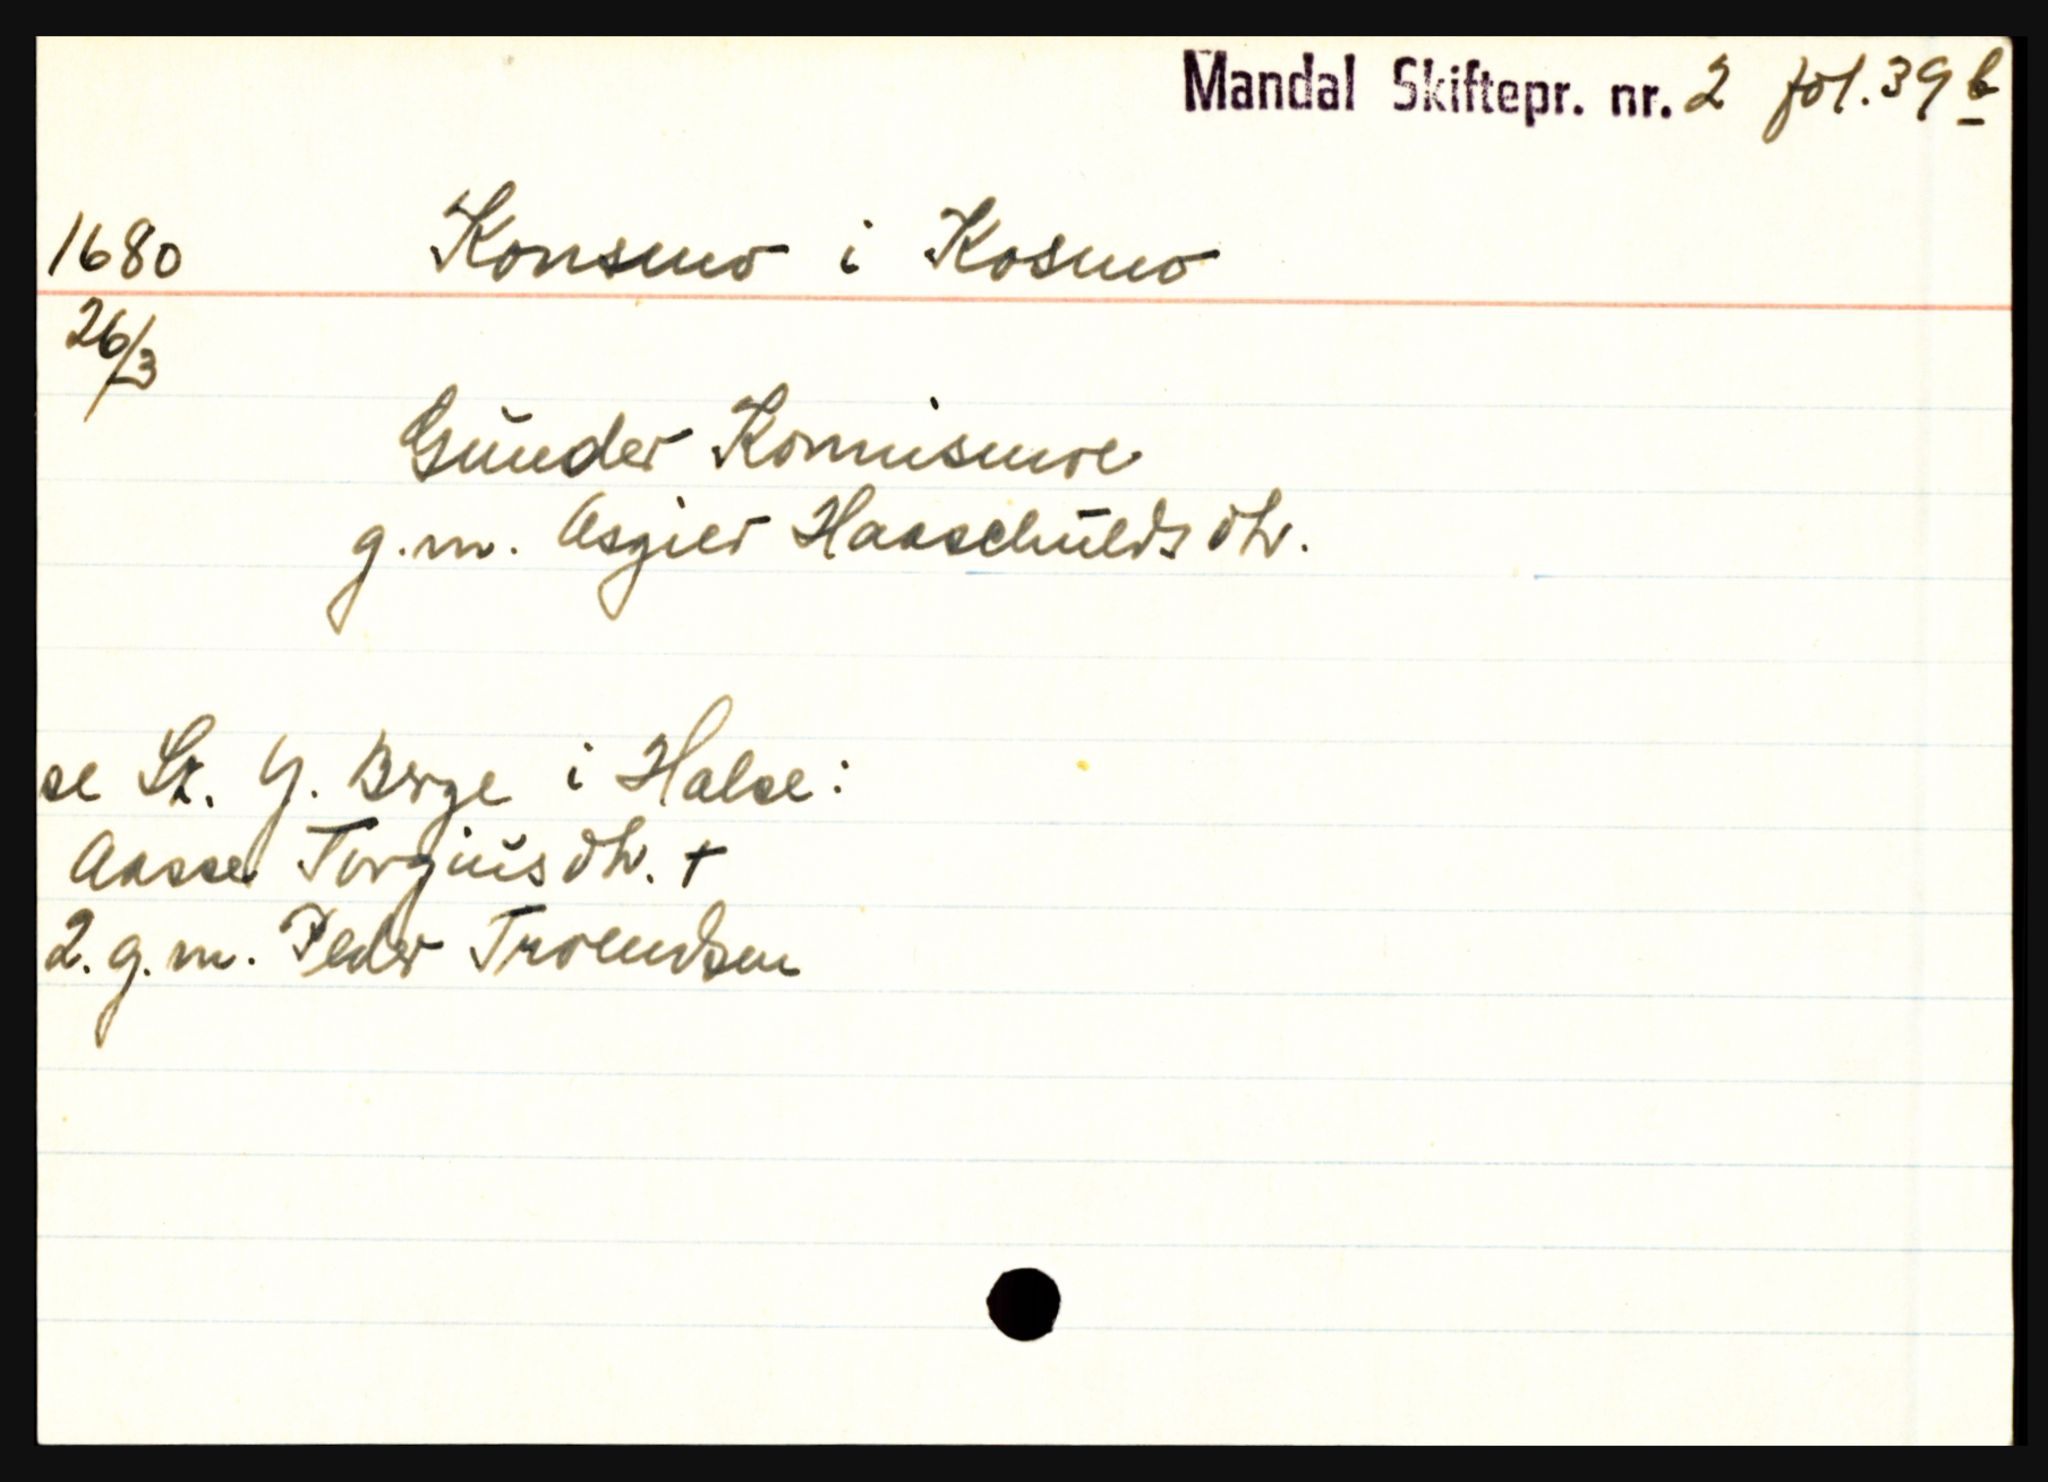 Mandal Skiftepr. nr. 2 fol. 39 b
1680 Konsmo i Kosmo
26/3
Gunder Konnismoe
g.m. Asgier Haaschulds dtr.
se St. Y. Berge i Halse:
Aasse Torgiusdtr. +
2. g.m. Peder Troendsen